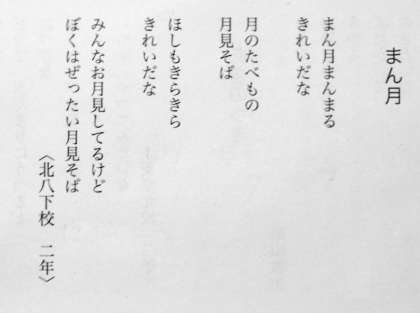 まん月
まん月まんまる
きれいだな
月のたべもの
月見そば
ほしもきらきら
きれいだな
みんなお月見してるけど
ぼくはぜったい月見そば
〈北八下校　二年〉